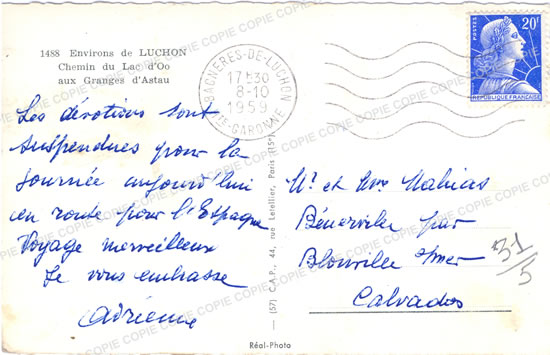 1488 Environs de LUCHON
Chemin du Lac d'Oo
aux Granges d'Astau
BAGNERES-DE-LUCHON
17H30
8-10
1959
HTE-GARONNE
POSTES
20F
REPUBLIQUE FRANÇAISE
Les dévotions sont
suspendues pour la
journée aujourd'hui
en route pour l'Espagne
Voyage merveilleux
Je vous embrasse
Adrienne
Mr et Mme Mahias
Bénerville par
Blonville s/mer
Calvados
31/5
(57) C.A.P., 44, rue Letellier, Paris (15e)
Réal-Photo
COPIE COPIE COPIE COPIE COPIE